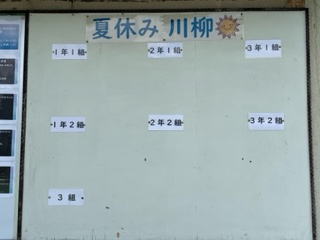 夏休み 川柳
1年1組
2年1組
3年1組
1年2組
2年2組
3年2組
3組